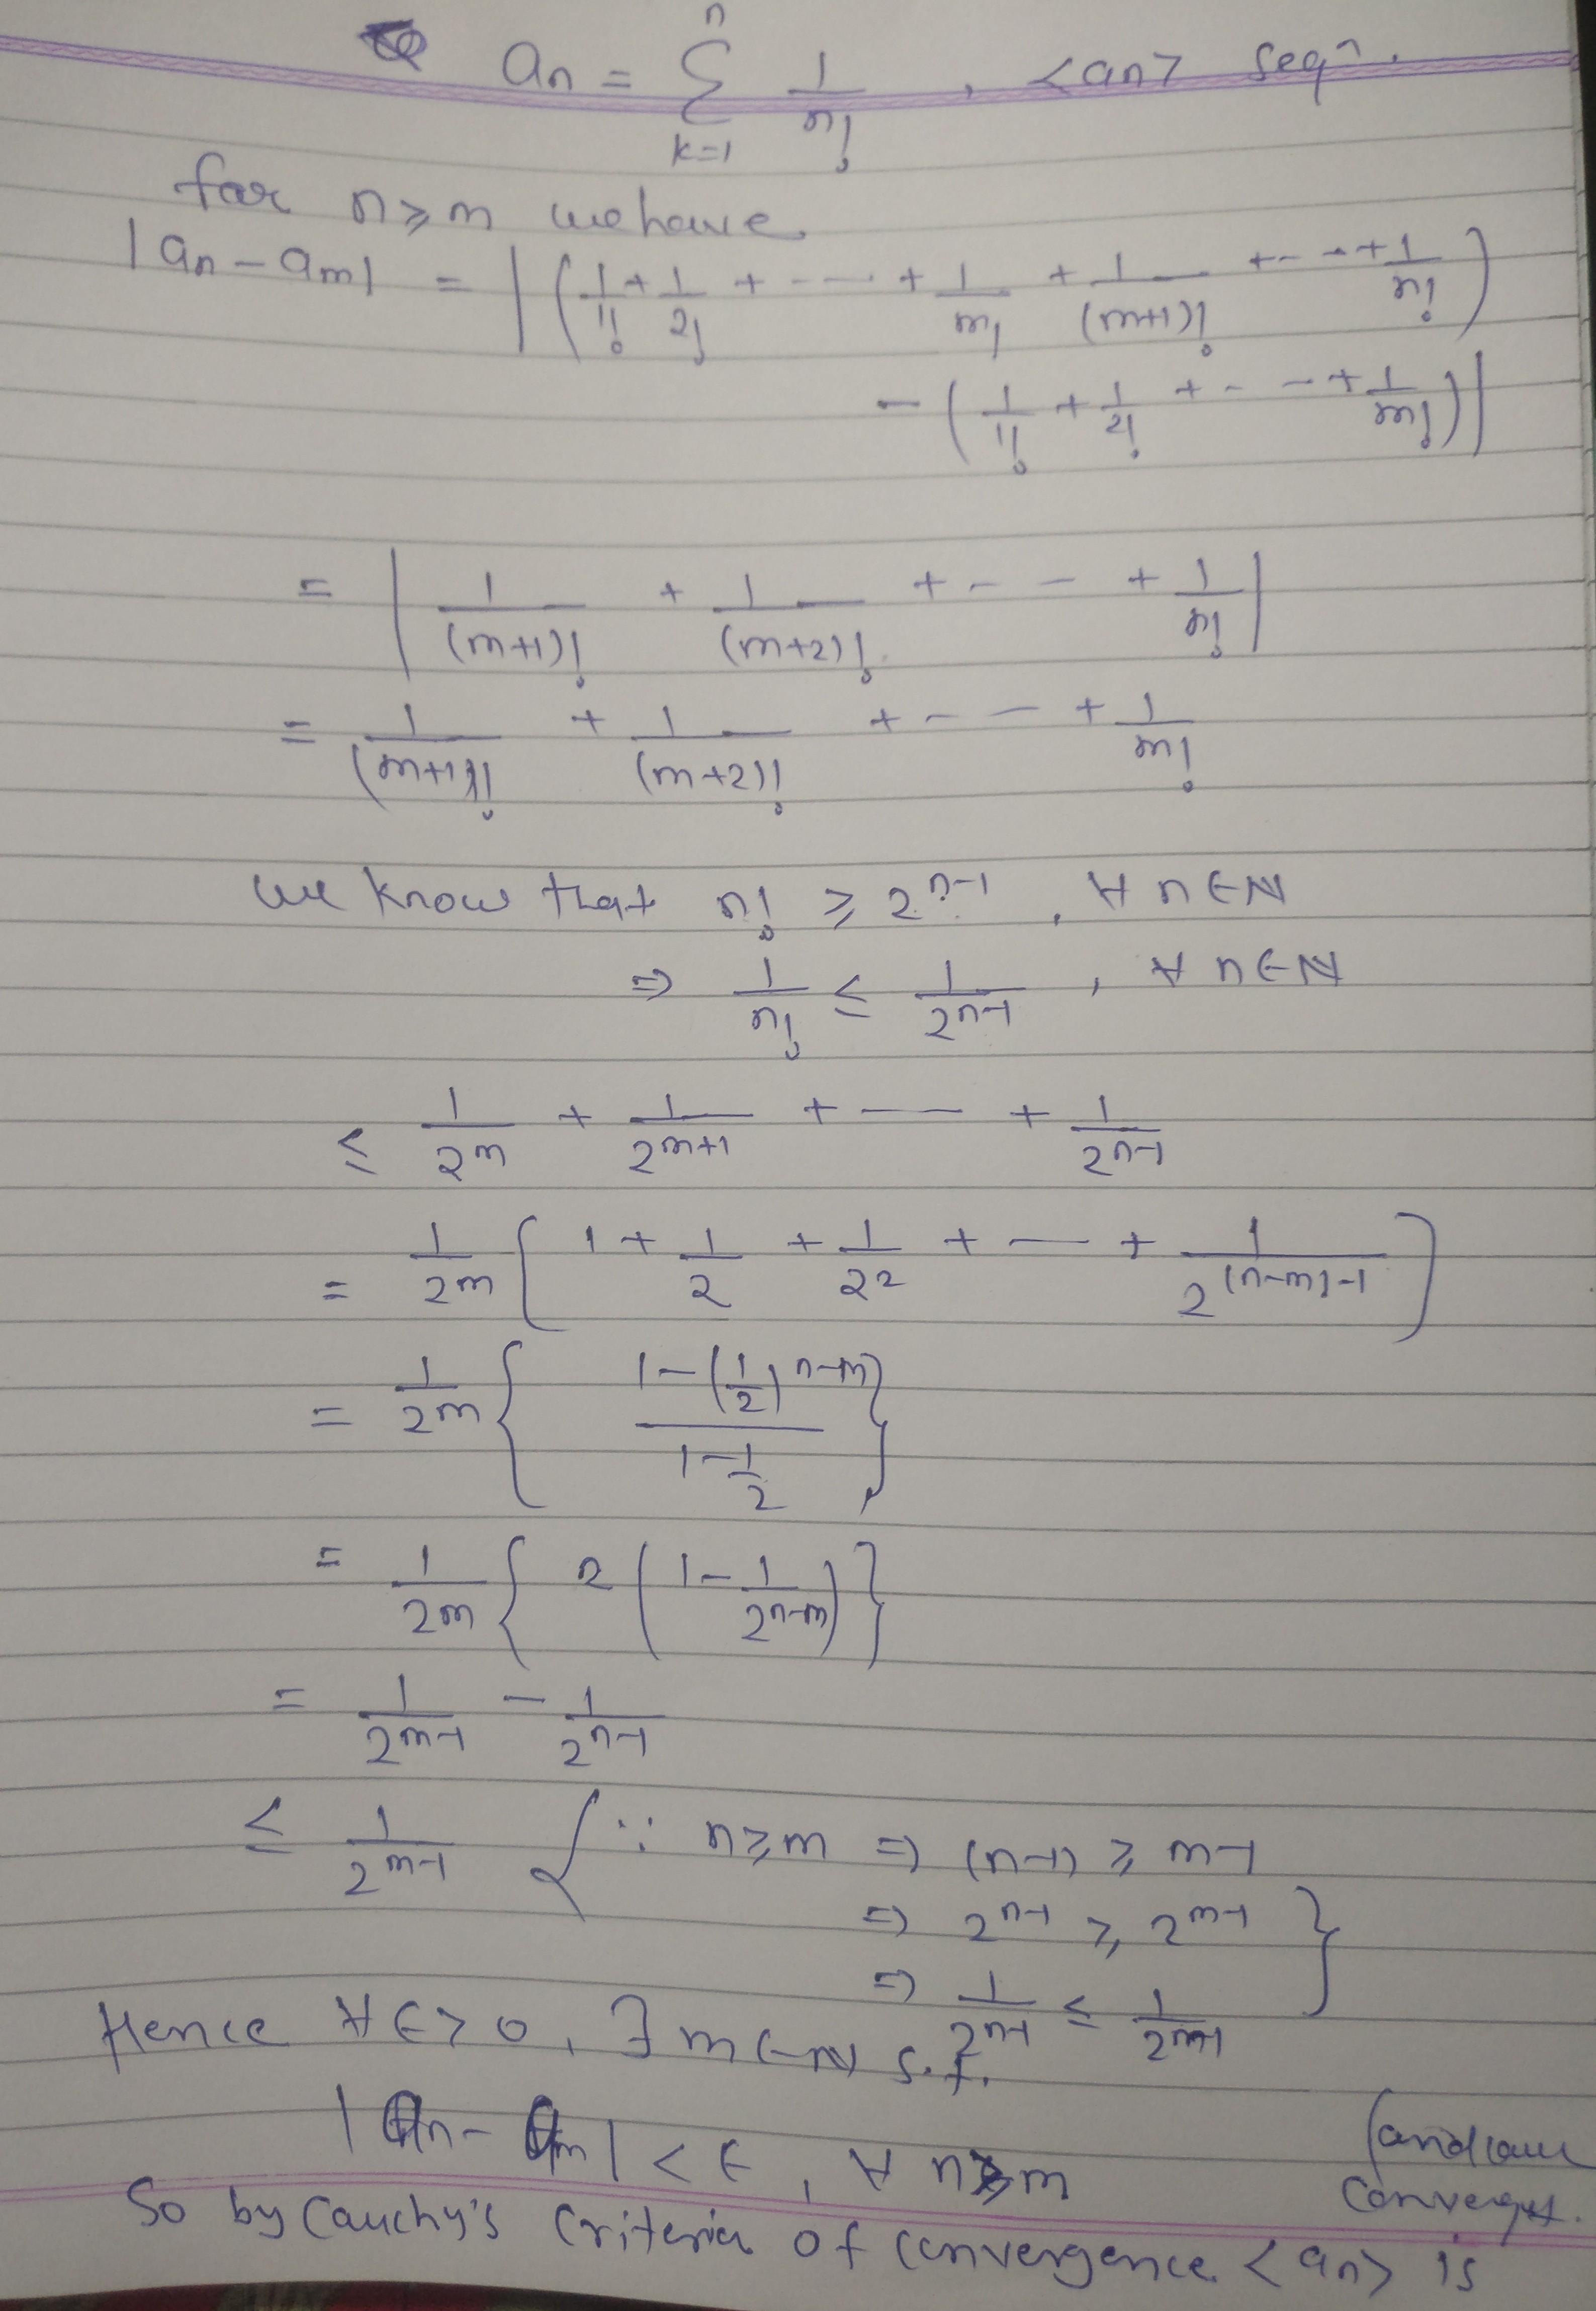 aₙ = Σ_{k=1}^{n} 1/n! , <aₙ> seqⁿ.
for n ≥ m we have
|aₙ - aₘ| = |(1/1! + 1/2! + --- + 1/m! + 1/(m+1)! + --- + 1/n!)
- (1/1! + 1/2! + --- + 1/m!)|
= |1/(m+1)! + 1/(m+2)! + -- + 1/n!|
= 1/(m+1)! + 1/(m+2)! + -- + 1/m!
we know that n! ≥ 2ⁿ⁻¹ , ∀ n∈ℕ
⇒ 1/n! ≤ 1/2ⁿ⁻¹ , ∀ n∈ℕ
≤ 1/2^m + 1/2^{m+1} + -- + 1/2^{n-1}
= 1/2^m [1 + 1/2 + 1/2² + -- + 1/2^{(n-m)-1}]
= 1/2^m {(1-(1/2)^{n-m})/(1-1/2)}
= 1/2^m {2(1 - 1/2^{n-m})}
= 1/2^{m-1} - 1/2^{n-1}
≤ 1/2^{m-1} {∵ n≥m ⇒ (n-1) ≥ m-1
⇒ 2^{n-1} ≥ 2^{m-1}
⇒ 1/2^{n-1} ≤ 1/2^{m-1}}
Hence ∀ ∈>0, ∃ m∈ℕ s.t.
|aₙ - aₘ| < ∈ , ∀ n≥m
So by Cauchy's Criteria of convergence <aₙ> is
convergent.